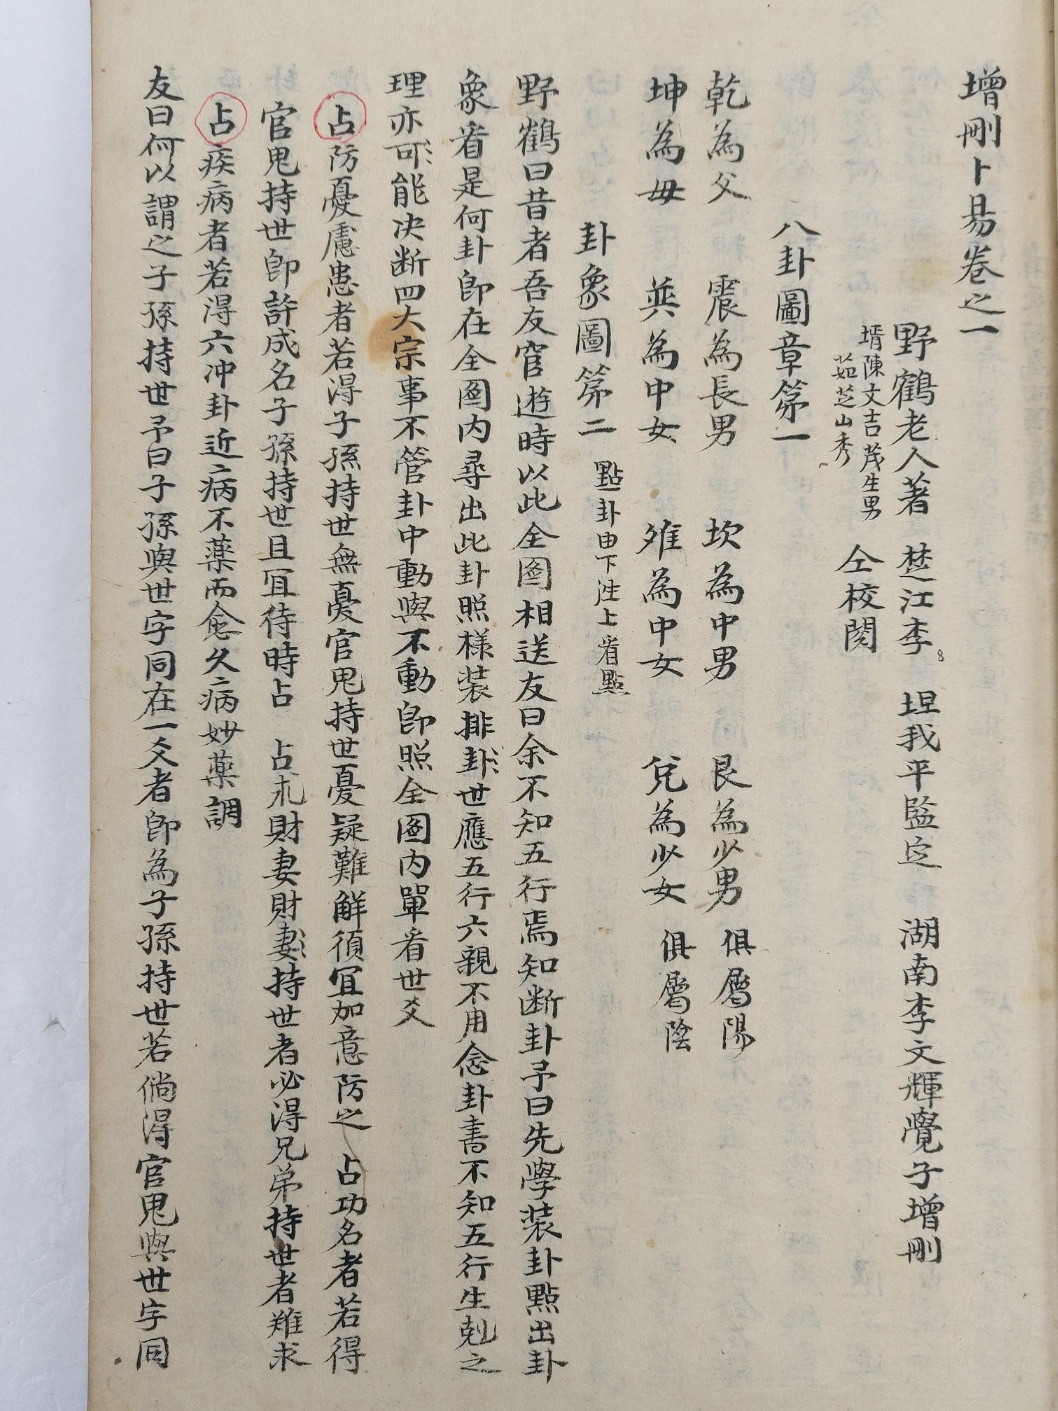 增刪卜易卷之一
野鶴老人著 楚江李 坦我平鑒定 湖南李文輝覺子增刪
壻陳文吉茂生男
茹芝山秀
仝校閱
八卦圖章第一
乾為父 震為長男 坎為中男 艮為少男 俱屬陽
坤為母 巽為中女 離為中女 兌為少女 俱屬陰
卦象圖第二 點卦由下浩上看點
野鶴曰昔者吾友宦遊時以此全圖相送友曰余不知五行焉知斷卦予曰先學裝卦點出卦
象看是何卦即在全圖內尋出此卦照樣裝排卦世應五行六親不用念卦書不知五行生剋之
理亦可能決斷四大宗事不管卦中動與不動即照全圖內單看世爻
占防憂慮患者若得子孫持世無憂官鬼持世憂疑難解須宜加意防之 占功名者若得
官鬼持世即許成名子孫持世且宜待時占 占求財妻財妻持世者必得兄弟持世者難求
占疾病者若得六冲卦近病不藥而愈久病妙藥調
友曰何以謂之子孫持世予曰子孫與世字同在一爻者即為子孫持世若倘得官鬼與世字同